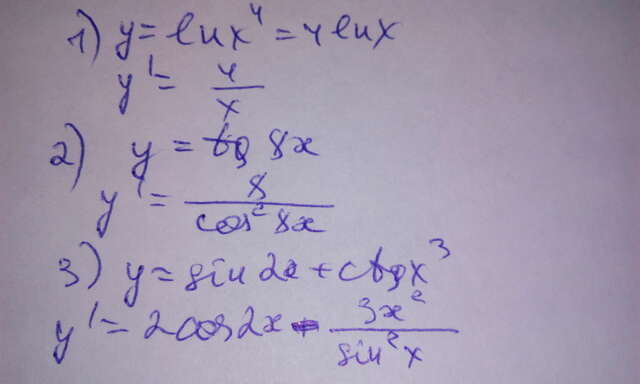 1) y = ln x⁴ = 4 ln x
y' = 4/x
2) y = tg 8x
y' = 8/cos² 8x
3) y = sin 2x + ctg x³
y' = 2cos2x - 3x²/sin² x